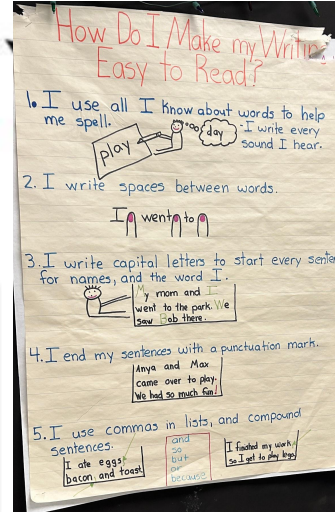 How Do I Make my Writing
Easy to Read?
1. I use all I know about words to help
me spell.
play
day
-I write every
sound I hear.
2. I write spaces between words.
I went to
3. I write capital letters to start every sente
for names, and the word I.
My mom and I
went to the park. We
saw Bob there.
4. I end my sentences with a punctuation mark.
Anya and Max
came over to play.
We had so much fun!
5. I use commas in lists, and compound
sentences.
I ate eggs,
bacon, and toast
and
so
but
or
because
I finished my work,
so I get to play lego